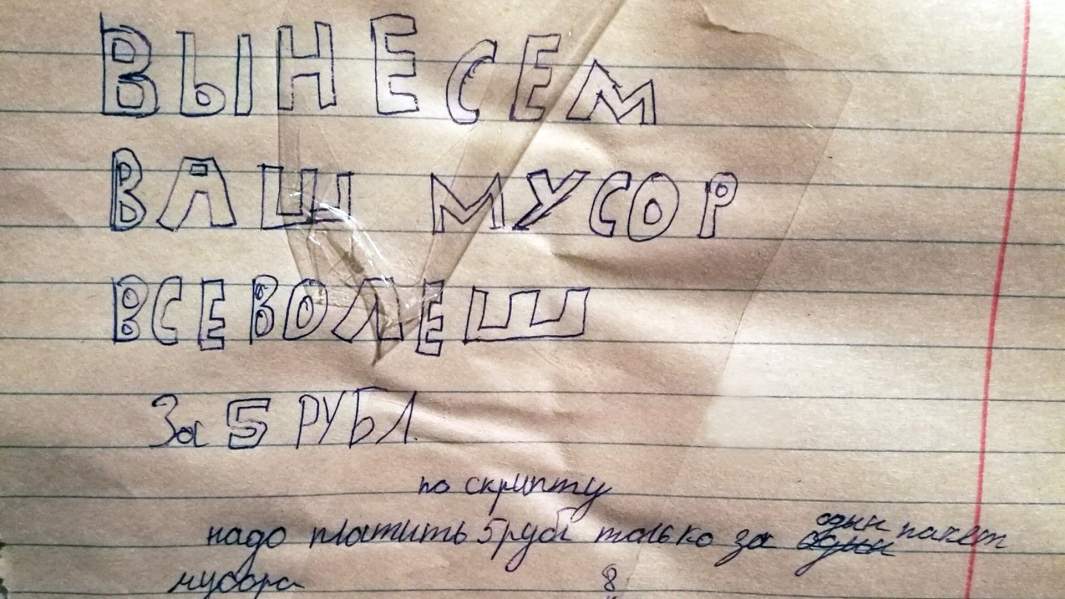 ВЫНЕСЕМ
ВАШ МУСОР
ВСЕВОЛЕШ
За 5 РУБЛ.
по скрипту
надо платить 5 рубл только за один пакет
мусора 8